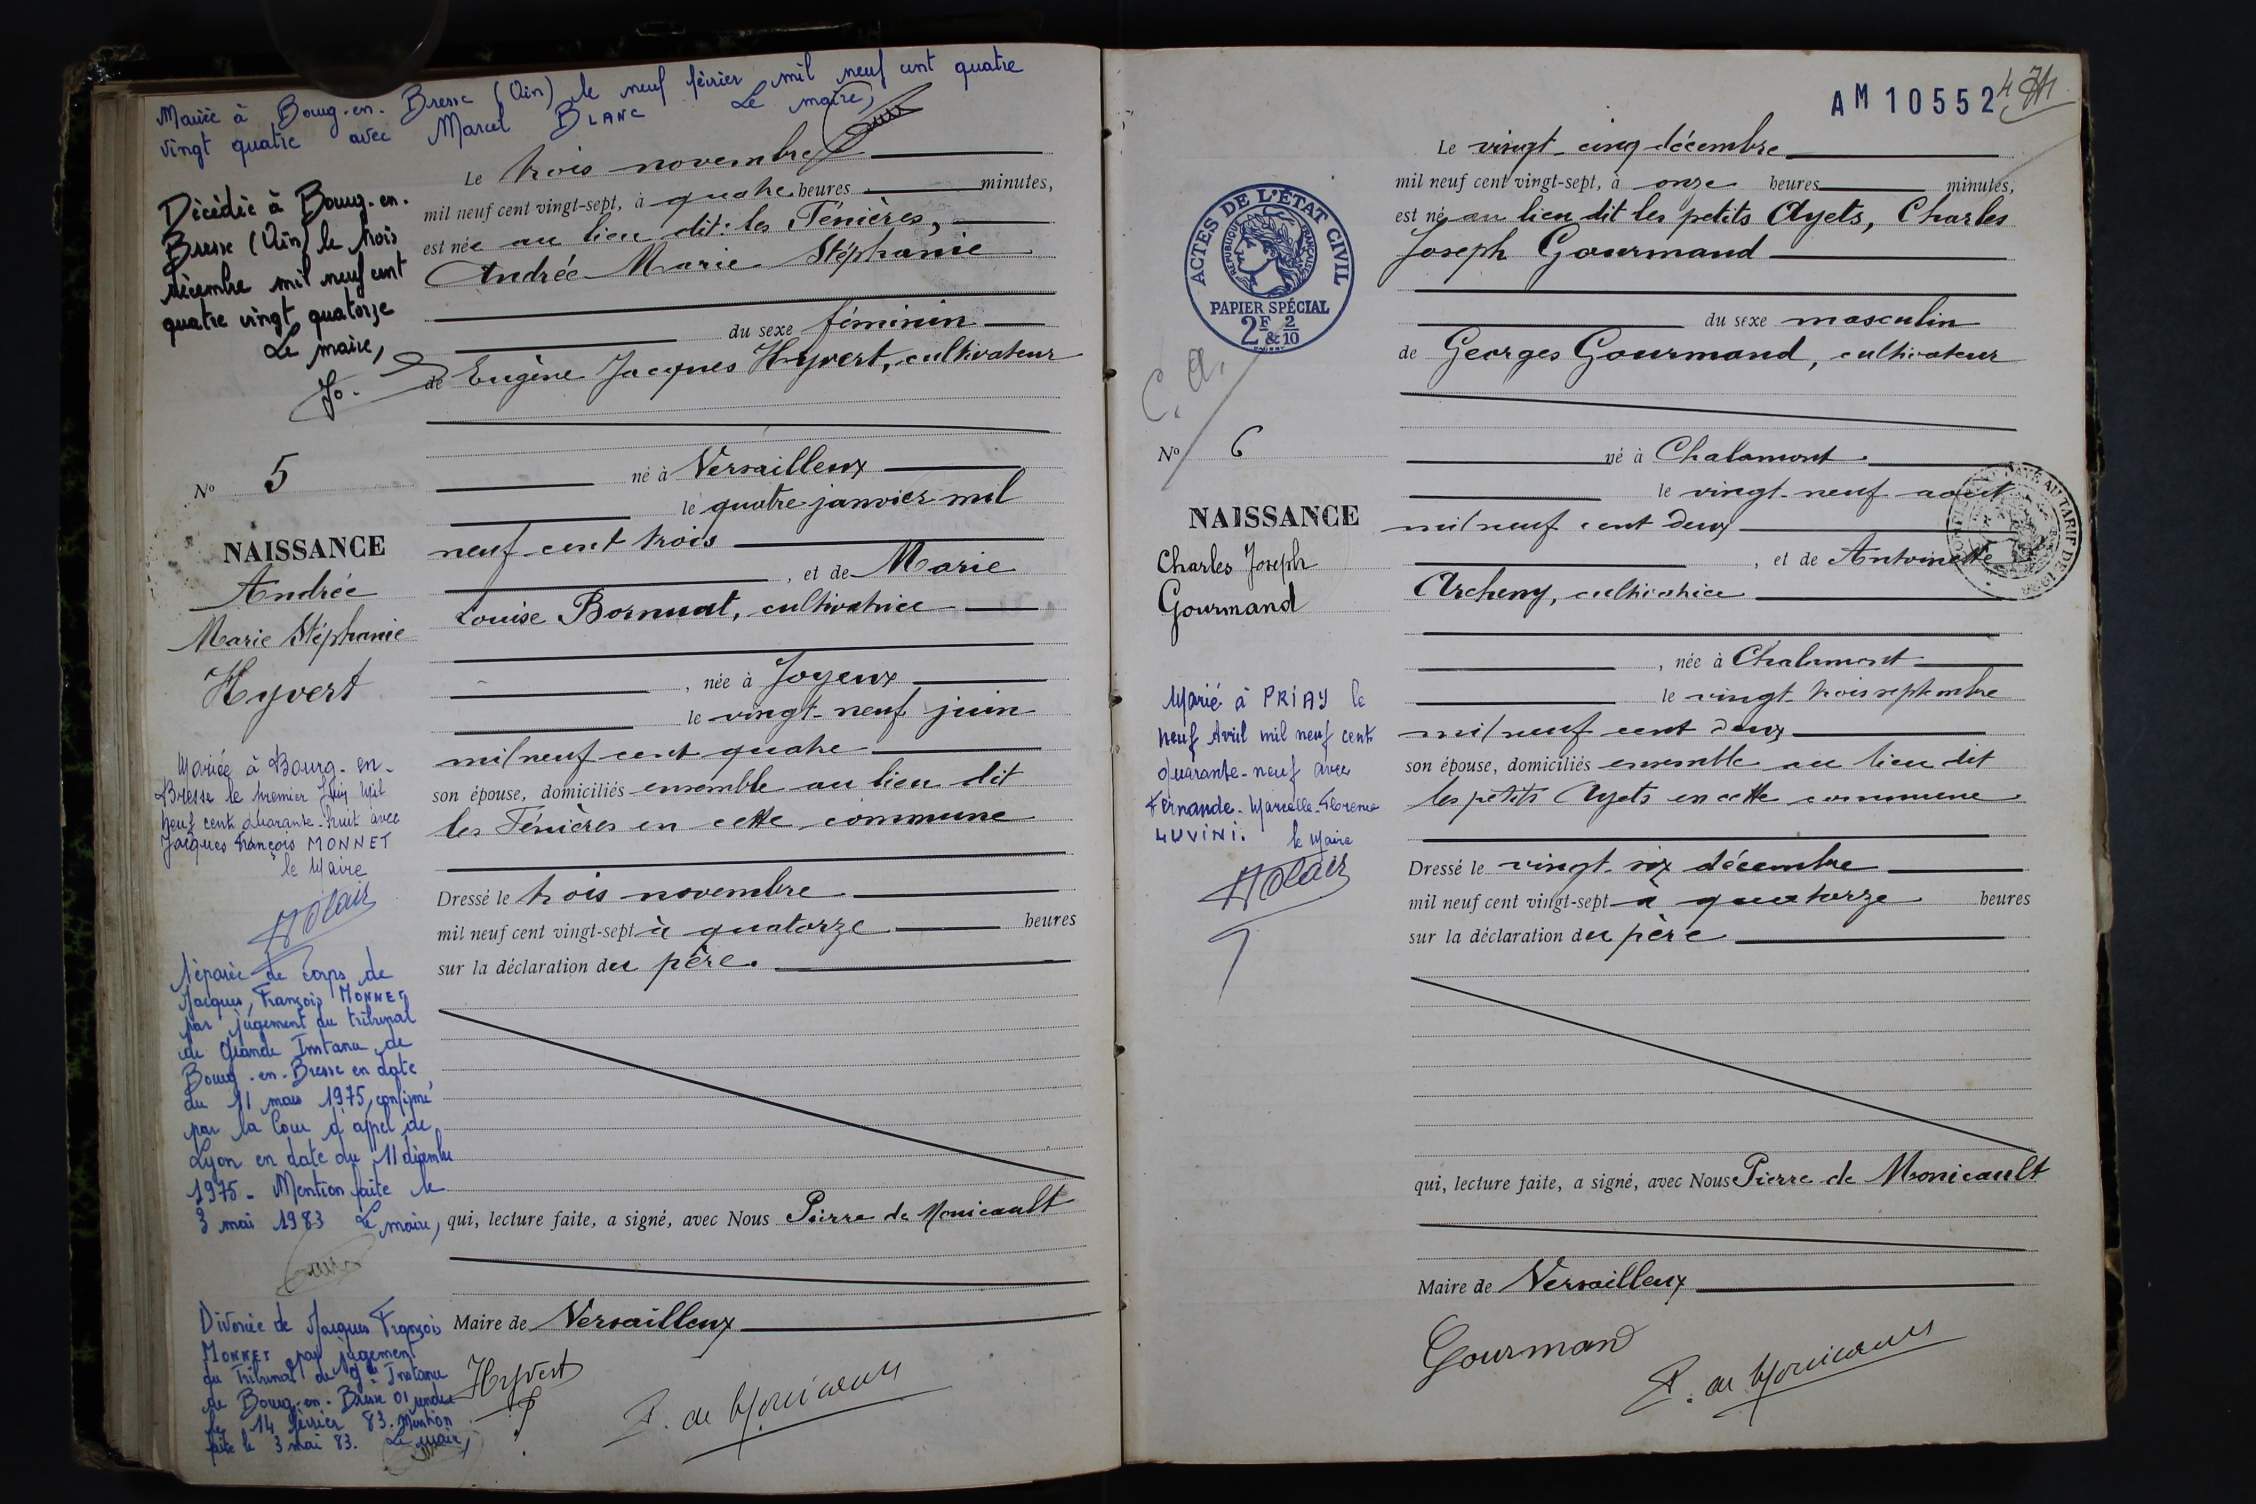 Mariée à Bourg-en-Bresse (Ain) le neuf février mil neuf cent quatre
vingt quatre avec Marcel BLANC Le maire,
Décédée à Bourg-en-
Bresse (Ain) le trois
décembre mil neuf cent
quatre vingt quatorze
Le maire,
N° 5
NAISSANCE
Andrée
Marie Stéphanie
Hyvert
Mariée à Bourg-en-
Bresse le premier Juin Mil
neuf cent quarante-huit avec
Jacques François MONNET
le Maire
Séparée de Corps de
Jacques, François MONNET
par jugement du tribunal
de Grande Instance de
Bourg-en-Bresse en date
du 11 mars 1975, confirmé
par la Cour d'appel de
Lyon en date du 11 décembre
1975. Mention faite le
3 mai 1983 Le maire,
Divorcée de Jacques François
MONNET par jugement
du Tribunal de Gde Instance
de Bourg-en-Bresse 01 rendu
le 14 février 83. Mention
faite le 3 mai 83. Le maire,
Le trois novembre
mil neuf cent vingt-sept, à quatre heures minutes,
est née au lieu dit: les Fénières,
Andrée Marie Stéphanie
du sexe féminin
de Eugène Jacques Hyvert, cultivateur
né à Versailleux
le quatre janvier mil
neuf cent trois
, et de Marie
Louise Bornuat, cultivatrice
, née à Joyeux
le vingt-neuf juin
mil neuf cent quatre
son épouse, domiciliés ensemble au lieu dit
les Fénières en cette commune
Dressé le trois novembre
mil neuf cent vingt-sept à quatorze heures
sur la déclaration du père.
qui, lecture faite, a signé, avec Nous Pierre de Monicault
Maire de Versailleux
Hyvert
P. de Monicault
AM 10552
4
ACTES DE L'ÉTAT CIVIL
RÉPUBLIQUE FRANÇAISE
PAPIER SPÉCIAL
2F & 2/10
C. A.
N° 6
NAISSANCE
Charles Joseph
Gourmand
Marié à PRIAY le
neuf Avril mil neuf cent
quarante-neuf avec
Fernande-Marcelle-Florence
LUVINI. le Maire
Le vingt-cinq décembre
mil neuf cent vingt-sept, à onze heures minutes,
est né au lieu dit les petits Ayets, Charles
Joseph Gourmand
du sexe masculin
de Georges Gourmand, cultivateur
né à Chalamont
le vingt-neuf aout
mil neuf cent deux
, et de Antoinette
Archeny, cultivatrice
, née à Chalamont
le vingt-trois septembre
mil neuf cent deux
son épouse, domiciliés ensemble au lieu dit
les petits Ayets en cette commune
Dressé le vingt-six décembre
mil neuf cent vingt-sept à quatorze heures
sur la déclaration du père
qui, lecture faite, a signé, avec Nous Pierre de Monicault
Maire de Versailleux
Gourmand
P. de Monicault